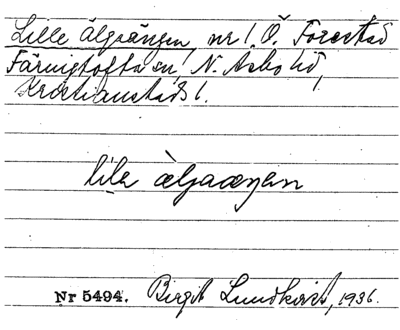 Lille älgsängen, nr 1. Ö. Forestad
Färingtofta sn, N. Åsbo hd,
Kristianstads l.
lilə àljaæŋən
Nr 5494. Birgit Lundkvist, 1936.